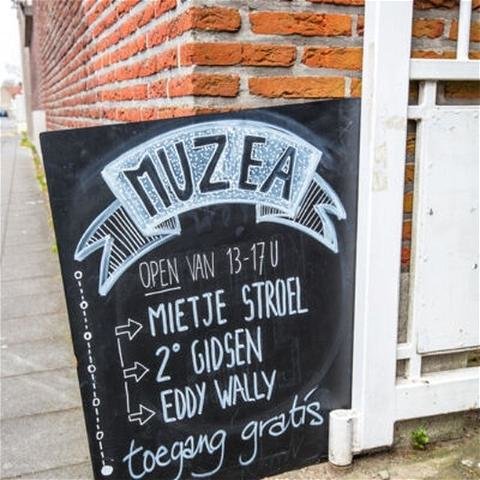 MUZEA
OPEN VAN 13-17 U
MIETJE STROEL
2° GIDSEN
EDDY WALLY
toegang gratis